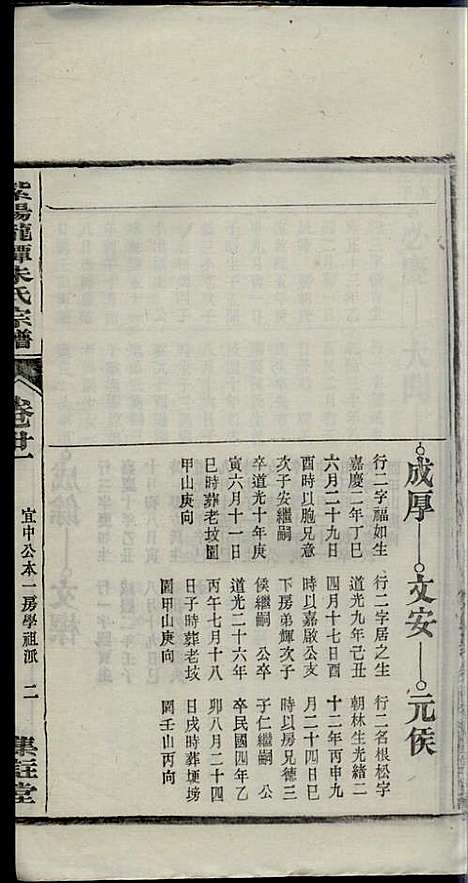 成厚 文安 元侯
行二字福如生
嘉慶二年丁巳
六月二十九日
酉時以胞兄意
次子安繼嗣
卒道光十年庚
寅六月十一日
巳時葬老坟圖
甲山庚向
行二字居之生
道光九年己丑
四月十七日酉
時以嘉啟公支
下房弟輝次子
侯繼嗣 公卒
道光二十六年
丙午七月十八
日子時葬老坟
圖甲山庚向
行二名根松字
朝林生光緒二
十二年丙申九
月二十四日巳
時以房兄德三
子仁繼嗣 公
卒民國四年乙
卯八月二十四
日戌時葬埂塝
圖壬山丙向
紫陽龍潭朱氏宗譜
卷廿一
宜中公本一房學祖派 二
集註堂